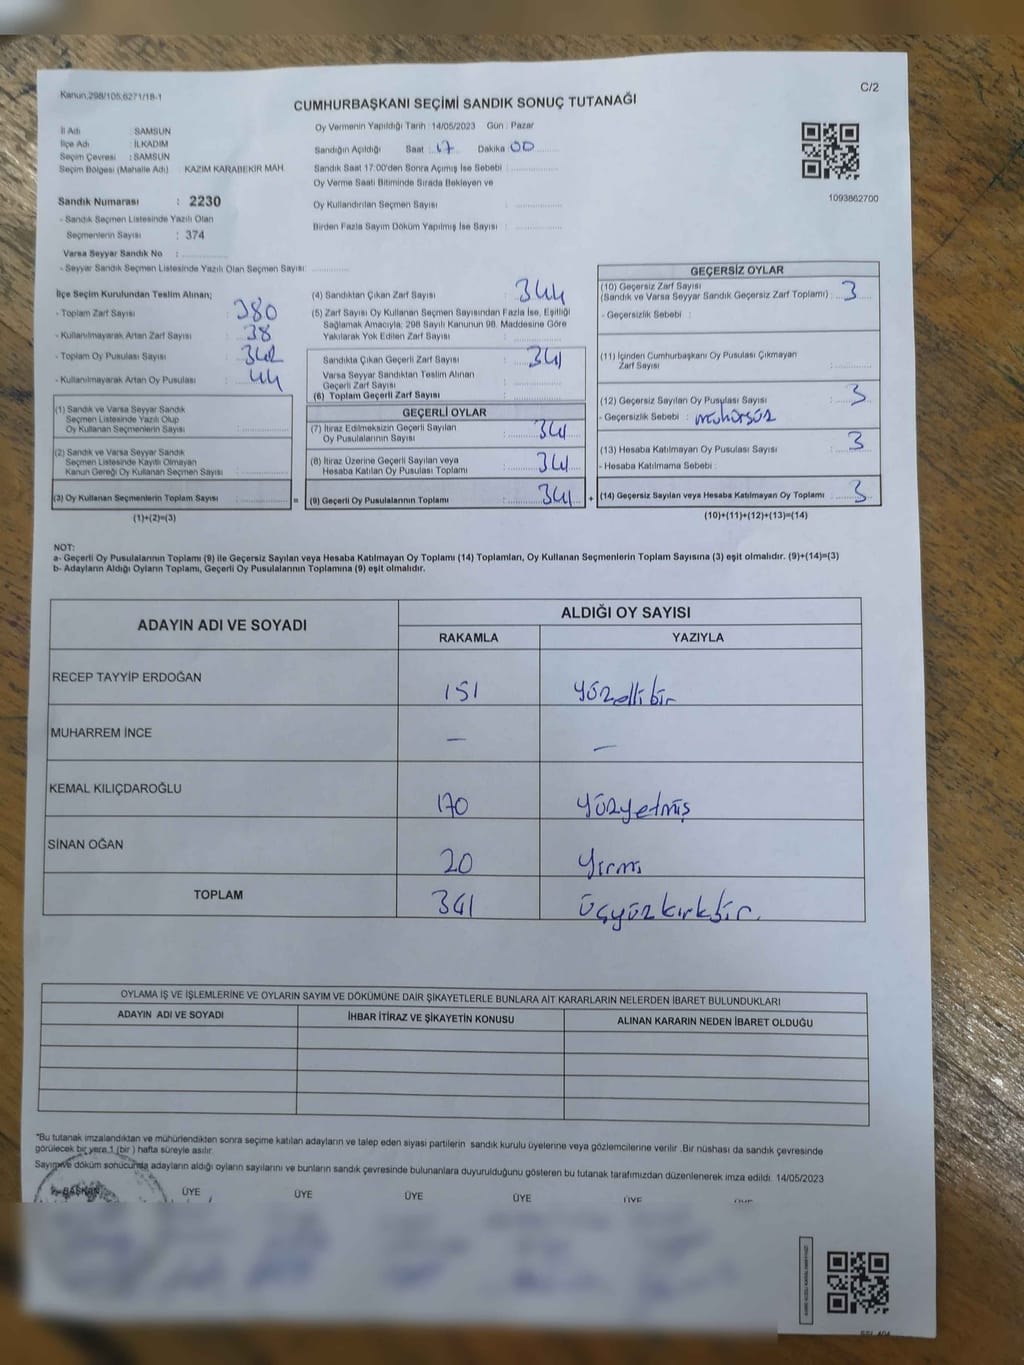 Kanun,298/105,6271/18-1
C/2
CUMHURBAŞKANI SEÇİMİ SANDIK SONUÇ TUTANAĞI
İl Adı SAMSUN
İlçe Adı : İLKADIM
Seçim Çevresi : SAMSUN
Seçim Bölgesi (Mahalle Adı) : KAZIM KARABEKİR MAH
Sandık Numarası : 2230
- Sandık Seçmen Listesinde Yazılı Olan
Seçmenlerin Sayısı : 374
Varsa Seyyar Sandık No :
- Seyyar Sandık Seçmen Listesinde Yazılı Olan Seçmen Sayısı
Oy Vermenin Yapıldığı Tarih : 14/05/2023 Gün : Pazar
Sandığın Açıldığı Saat : 17 Dakika 00
Sandık Saat 17:00'den Sonra Açımış İse Sebebi :
Oy Verme Saati Bitiminde Sırada Bekleyen ve
Oy Kullandırılan Seçmen Sayısı :
Birden Fazla Sayım Döküm Yapılmış İse Sayısı :
1093862700
İlçe Seçim Kurulundan Teslim Alınan;
- Toplam Zarf Sayısı : 380
- Kullanılmayarak Artan Zarf Sayısı : 38
- Toplam Oy Pusulası Sayısı : 342
- Kullanılmayarak Artan Oy Pusulası : 44
(1) Sandık ve Varsa Seyyar Sandık
Seçmen Listesinde Yazılı Olup
Oy Kullanan Seçmenlerin Sayısı :
(2) Sandık ve Varsa Seyyar Sandık
Seçmen Listesinde Kayıtlı Olmayan
Kanun Gereği Oy Kullanan Seçmen Sayısı :
(3) Oy Kullanan Seçmenlerin Toplam Sayısı : =
(1)+(2)=(3)
(4) Sandıktan Çıkan Zarf Sayısı : 344
(5) Zarf Sayısı Oy Kullanan Seçmen Sayısından Fazla İse, Eşitliği
Sağlamak Amacıyla; 298 Sayılı Kanunun 98. Maddesine Göre
Yakılarak Yok Edilen Zarf Sayısı :
Sandıkta Çıkan Geçerli Zarf Sayısı : 341
Varsa Seyyar Sandıktan Teslim Alınan
Geçerli Zarf Sayısı
(6) Toplam Geçerli Zarf Sayısı :
GEÇERLİ OYLAR
(7) İtiraz Edilmeksizin Geçerli Sayılan
Oy Pusulalarının Sayısı : 341
(8) İtiraz Üzerine Geçerli Sayılan veya
Hesaba Katılan Oy Pusulası Toplamı : 341
(9) Geçerli Oy Pusulalarının Toplamı : 341 +
GEÇERSİZ OYLAR
(10) Geçersiz Zarf Sayısı
(Sandık ve Varsa Seyyar Sandık Geçersiz Zarf Toplamı) : 3
- Geçersizlik Sebebi :
(11) İçinden Cumhurbaşkanı Oy Pusulası Çıkmayan
Zarf Sayısı :
(12) Geçersiz Sayılan Oy Pusulası Sayısı : 3
- Geçersizlik Sebebi : mühürsüz
(13) Hesaba Katılmayan Oy Pusulası Sayısı : 3
- Hesaba Katılmama Sebebi :
(14) Geçersiz Sayılan veya Hesaba Katılmayan Oy Toplamı : 3
(10)+(11)+(12)+(13)=(14)
NOT:
a- Geçerli Oy Pusulalarının Toplamı (9) ile Geçersiz Sayılan veya Hesaba Katılmayan Oy Toplamı (14) Toplamları, Oy Kullanan Seçmenlerin Toplam Sayısına (3) eşit olmalıdır. (9)+(14)=(3)
b- Adayların Aldığı Oyların Toplamı, Geçerli Oy Pusulalarının Toplamına (9) eşit olmalıdır.
ADAYIN ADI VE SOYADI
ALDIĞI OY SAYISI
RAKAMLA YAZIYLA
RECEP TAYYİP ERDOĞAN 151 Yüzellibir
MUHARREM İNCE — —
KEMAL KILIÇDAROĞLU 170 Yüzyetmiş
SİNAN OĞAN 20 Yirmi
TOPLAM 341 üçyüzkırkbir.
OYLAMA İŞ VE İŞLEMLERİNE VE OYLARIN SAYIM VE DÖKÜMÜNE DAİR ŞİKAYETLERLE BUNLARA AİT KARARLARIN NELERDEN İBARET BULUNDUKLARI
ADAYIN ADI VE SOYADI İHBAR İTİRAZ VE ŞİKAYETİN KONUSU ALINAN KARARIN NEDEN İBARET OLDUĞU
"Bu tutanak imzalandıktan ve mühürlendikten sonra seçime katılan adayların ve talep eden siyasi partilerin sandık kurulu üyelerine veya gözlemcilerine verilir .Bir nüshası da sandık çevresinde
görülecek bir yere 1 (bir ) hafta süreyle asılır.
Sayım ve döküm sonucunda adayların aldığı oyların sayılarını ve bunların sandık çevresinde bulunanlara duyurulduğunu gösteren bu tutanak tarafımızdan düzenlenerek imza edildi. 14/05/2023
BAŞKAN ÜYE ÜYE ÜYE ÜYE ÜYE